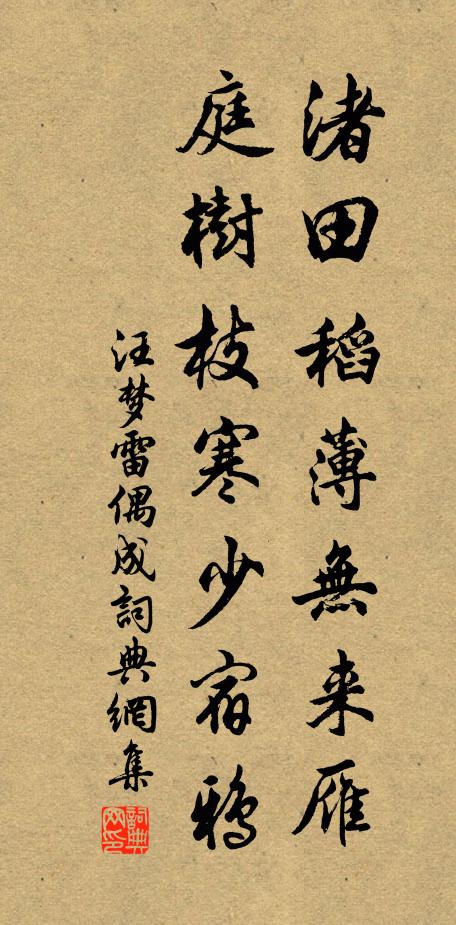 渚田稻薄無来雁
庭樹枝寒少宿鴉
汪梦雷偶成詞典網集
詞典网印